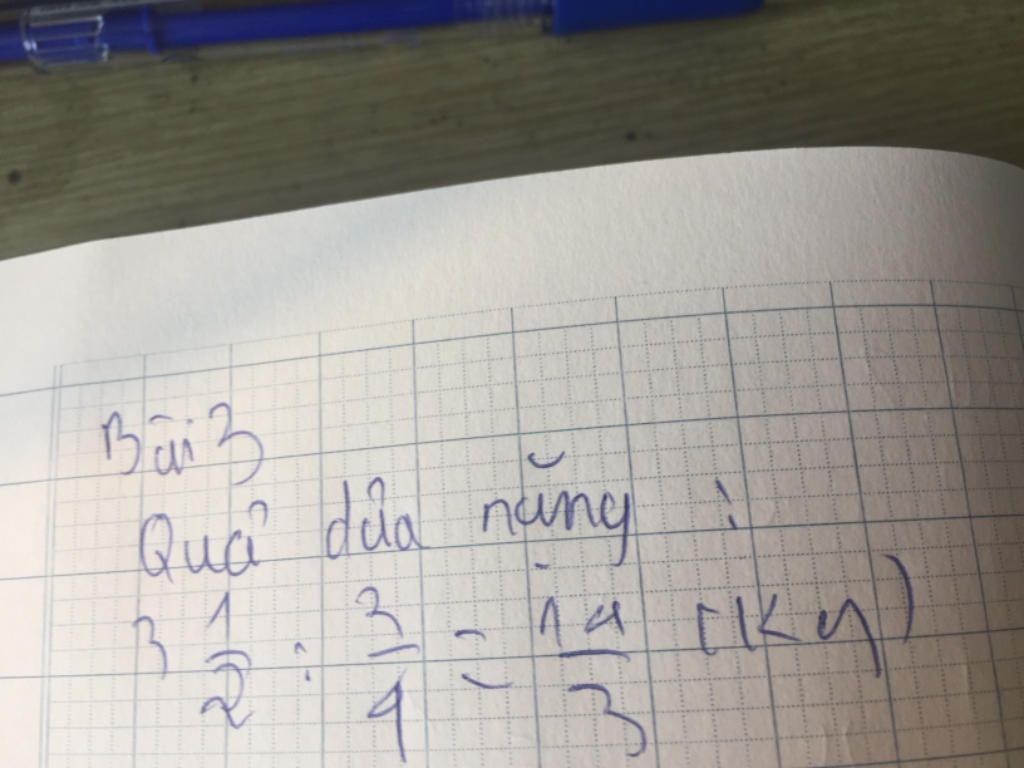 Bài 3
Quả dưa nặng :
3 1/2 : 3/4 = 14/3 (kg)